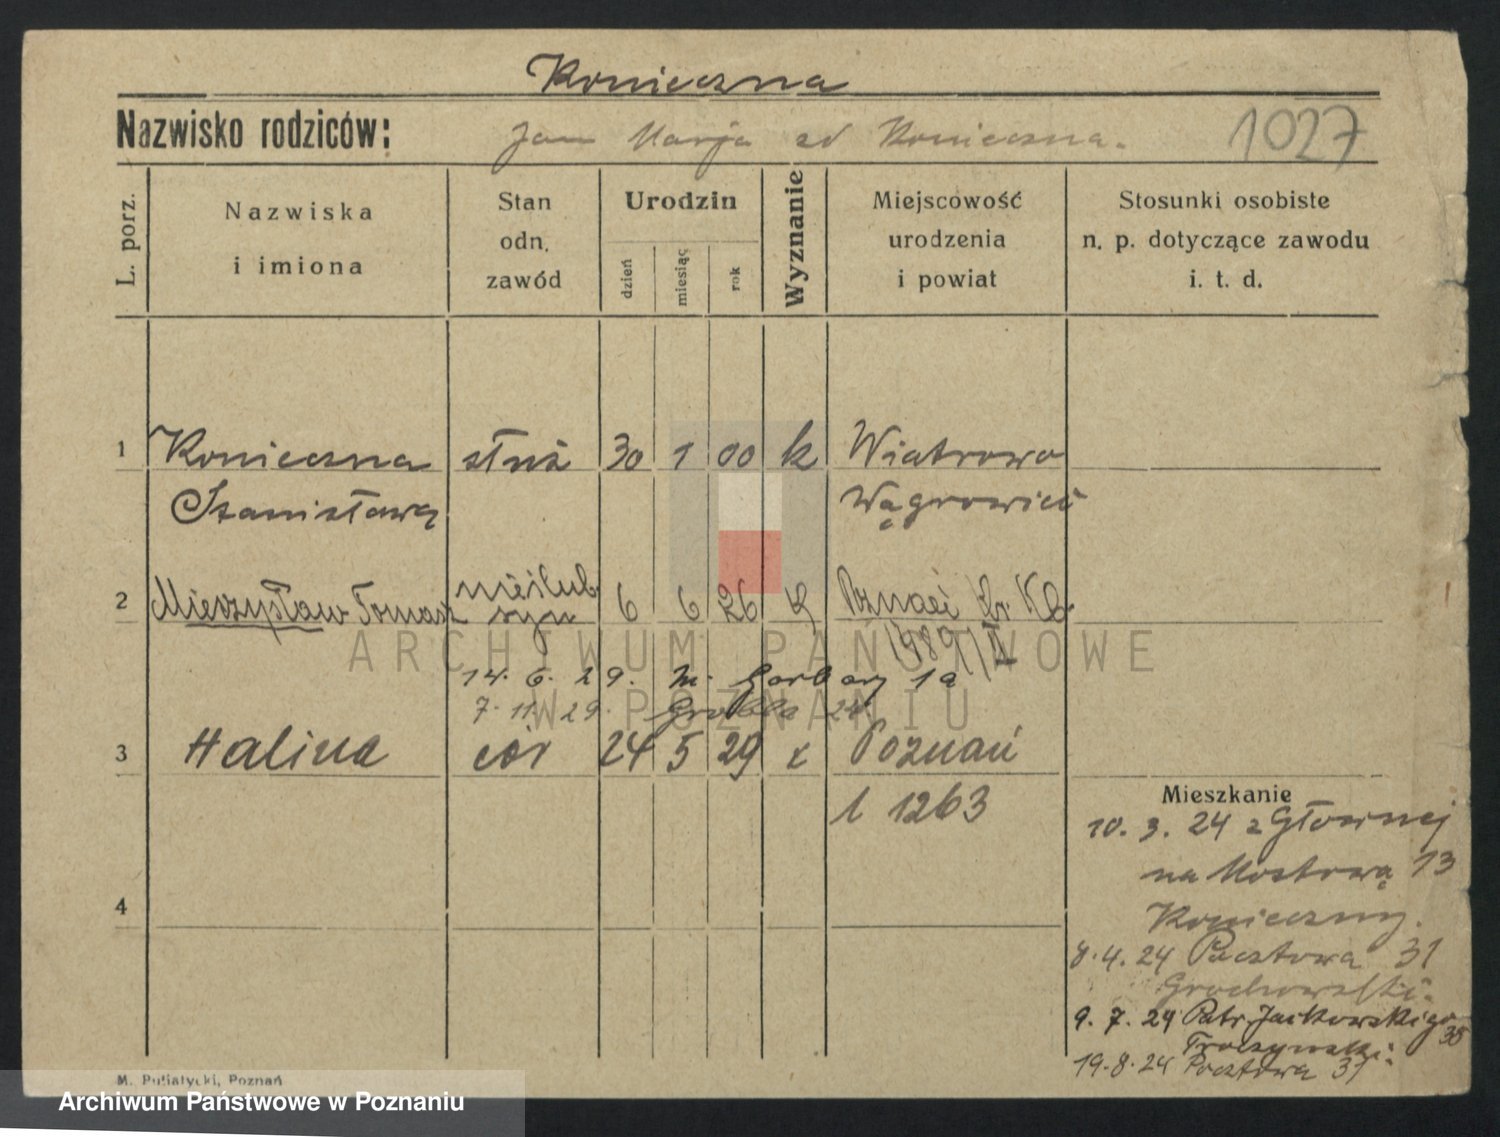 Konieczna
Nazwisko rodziców: Jan Marja zd Konieczna. 1027
L. porz.
Nazwiska
i imiona
Stan
odn.
zawód
Urodzin
dzień
miesiąc
rok
Wyznanie
Miejscowość
urodzenia
i powiat
Stosunki osobiste
n. p. dotyczące zawodu
i. t. d.
1 Konieczna służ 30 1 00 k Wiatrowo
Stanisława Wągrowiec
2 Mieczysław Tomasz nieślub syn 6 6 26 k Poznań
1489/II
ARCHIWUM PAŃSTWOWE
14. 6. 29. m. Garbary 1a
W POZNANIU
7. 11. 29. Grobla 24.
3 Halina cór 24 5 29 k Poznań
l 1263
Mieszkanie
10. 3. 24 z Głównej
na Mostową 13
Konieczny.
4
8. 4. 24 Pocztowa 31
Grochowski.
9. 7. 24 Patr. Jackowskiego 38
19. 8. 24 Pocztowa 31
M. Putiatycki, Poznań
Archiwum Państwowe w Poznaniu